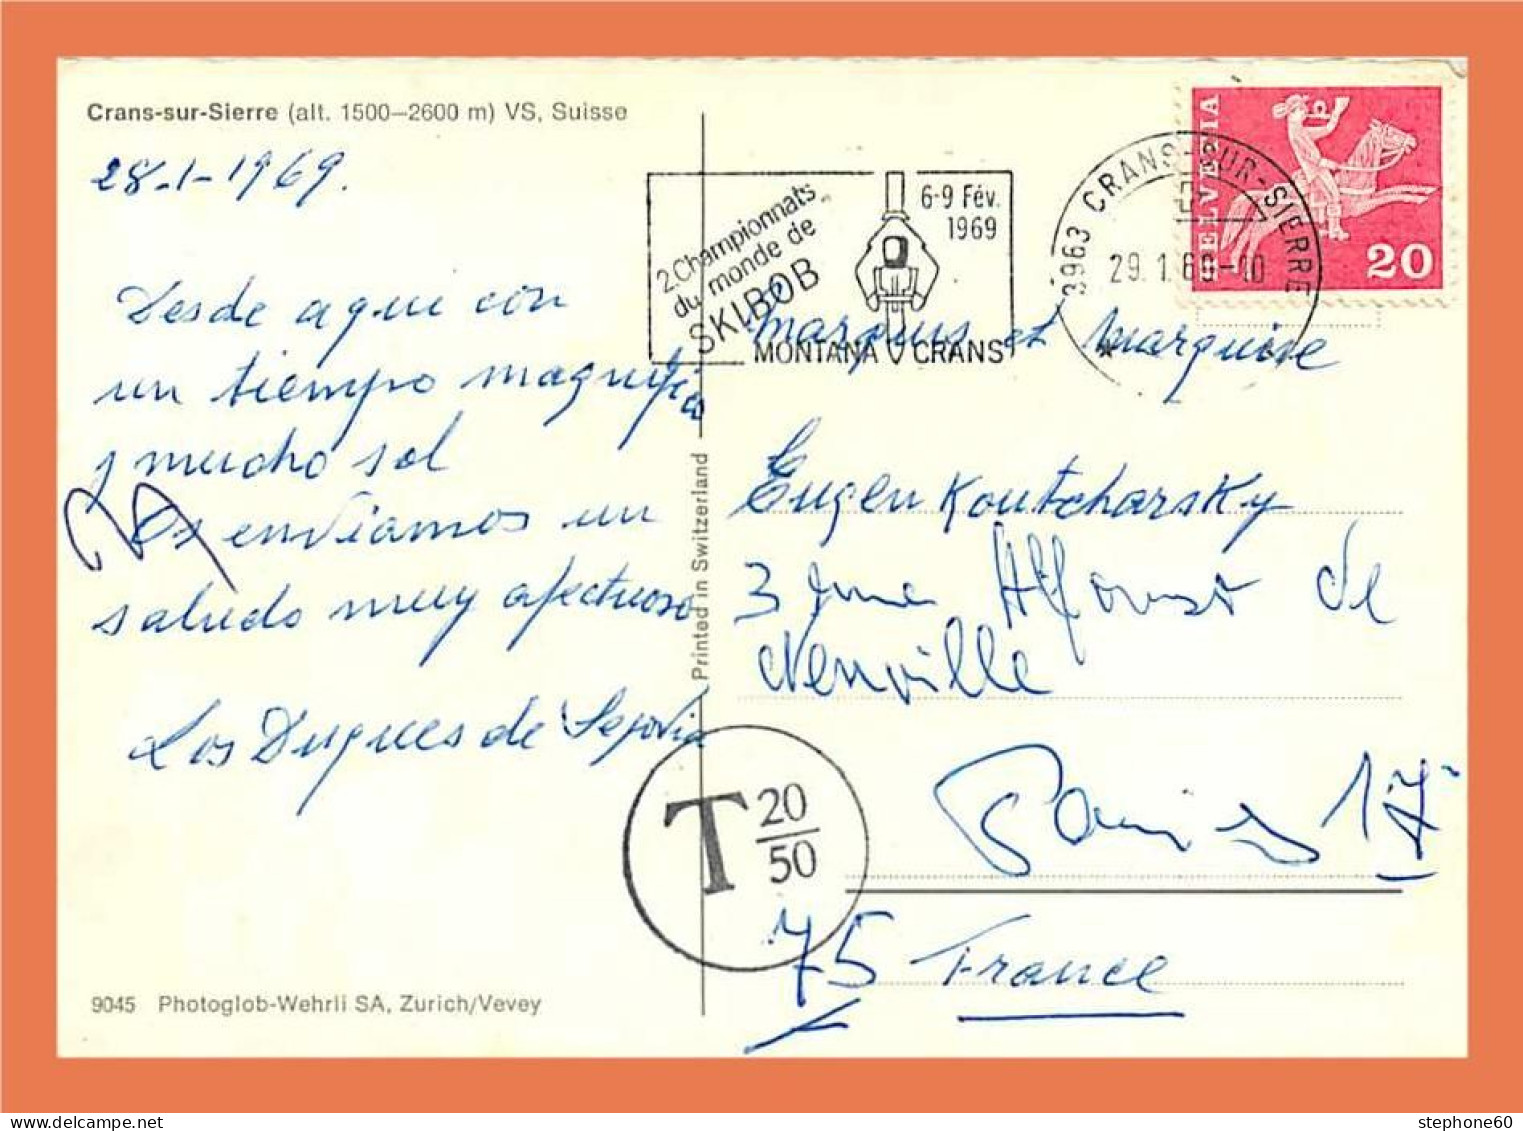 Crans-sur-Sierre (alt. 1500–2600 m) VS, Suisse
28-1-1969.
Desde aqui con
un tiempo magnifico
y mucho sol
Os enviamos un
saludo muy afectuoso
Los Duques de Segovia
9045 Photoglob-Wehrli SA, Zurich/Vevey
Printed in Switzerland
2. Championnats
du monde de
SKIBOB
6-9 Fév.
1969
MONTANA CRANS
3963 CRANS-SUR-SIERRE
29.1.69-10
HELVETIA
20
Marquis et Marquise
Eugen Koutcharsky
3 Alfonso de
Neuville
Paris 17
75 France
T 20
50
stephone60